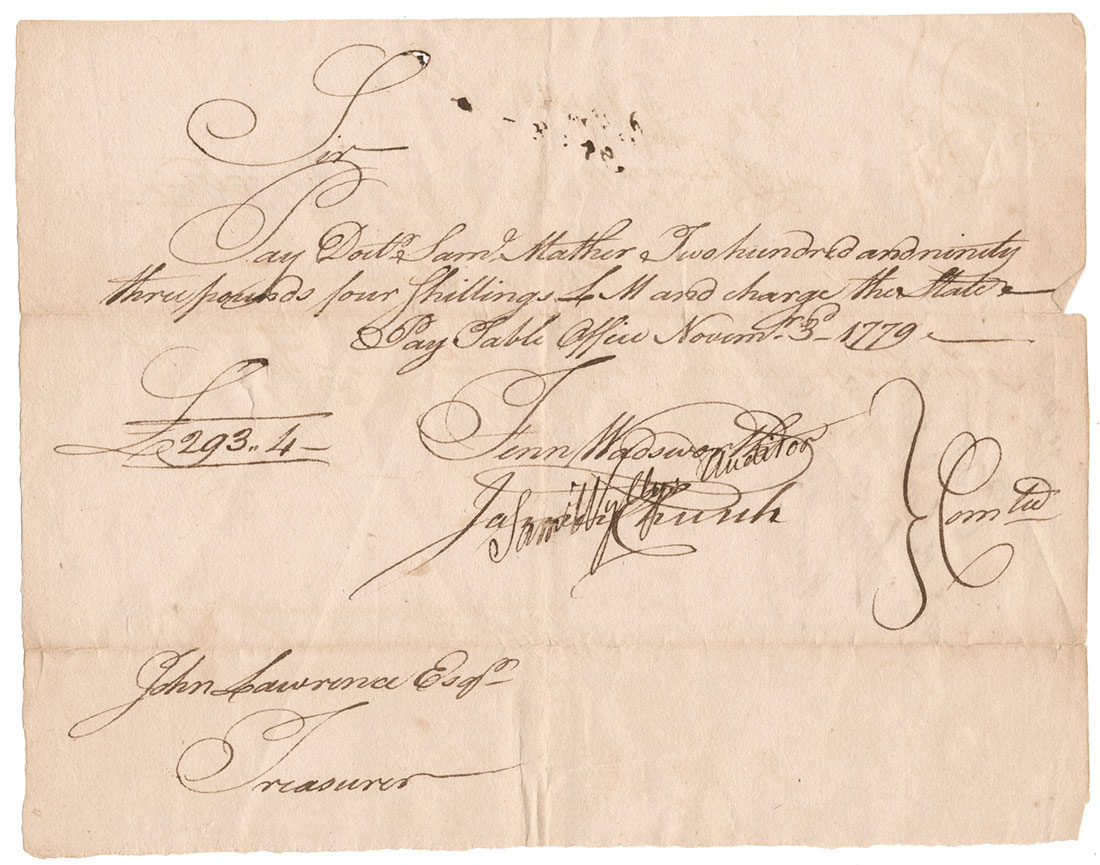 Sir
Pay Doctr. Saml. Mather Two hundred and ninity
three pounds four Shillings L M and charge the State
Pay Table Office Novemr. 3d 1779
£293..4
Fenn Wadsworth
Auditor
Church
Comtee
John Lawrence Esqr
Treasurer